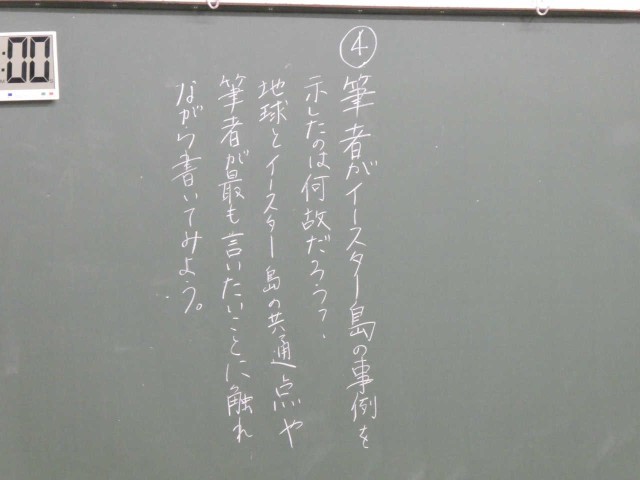 ④筆者がイースター島の事例を
示したのは何故だろう?
地球とイースター島の共通点や
筆者が最も言いたいことに触れ
ながら書いてみよう。
:00